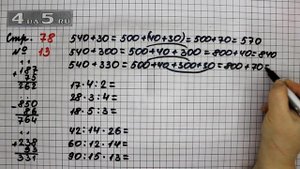 Стр. 78
№ 13
540+30=500+(40+30)=500+70=570
540+300=500+40+300=800+40=840
540+330=500+40+300+30=800+70=
+187
75
262
-850
86
764
+238
93
331
17·4:2=
28·3:4=
18·5:3=
42:14·26=
60:12·14=
90:15·13=